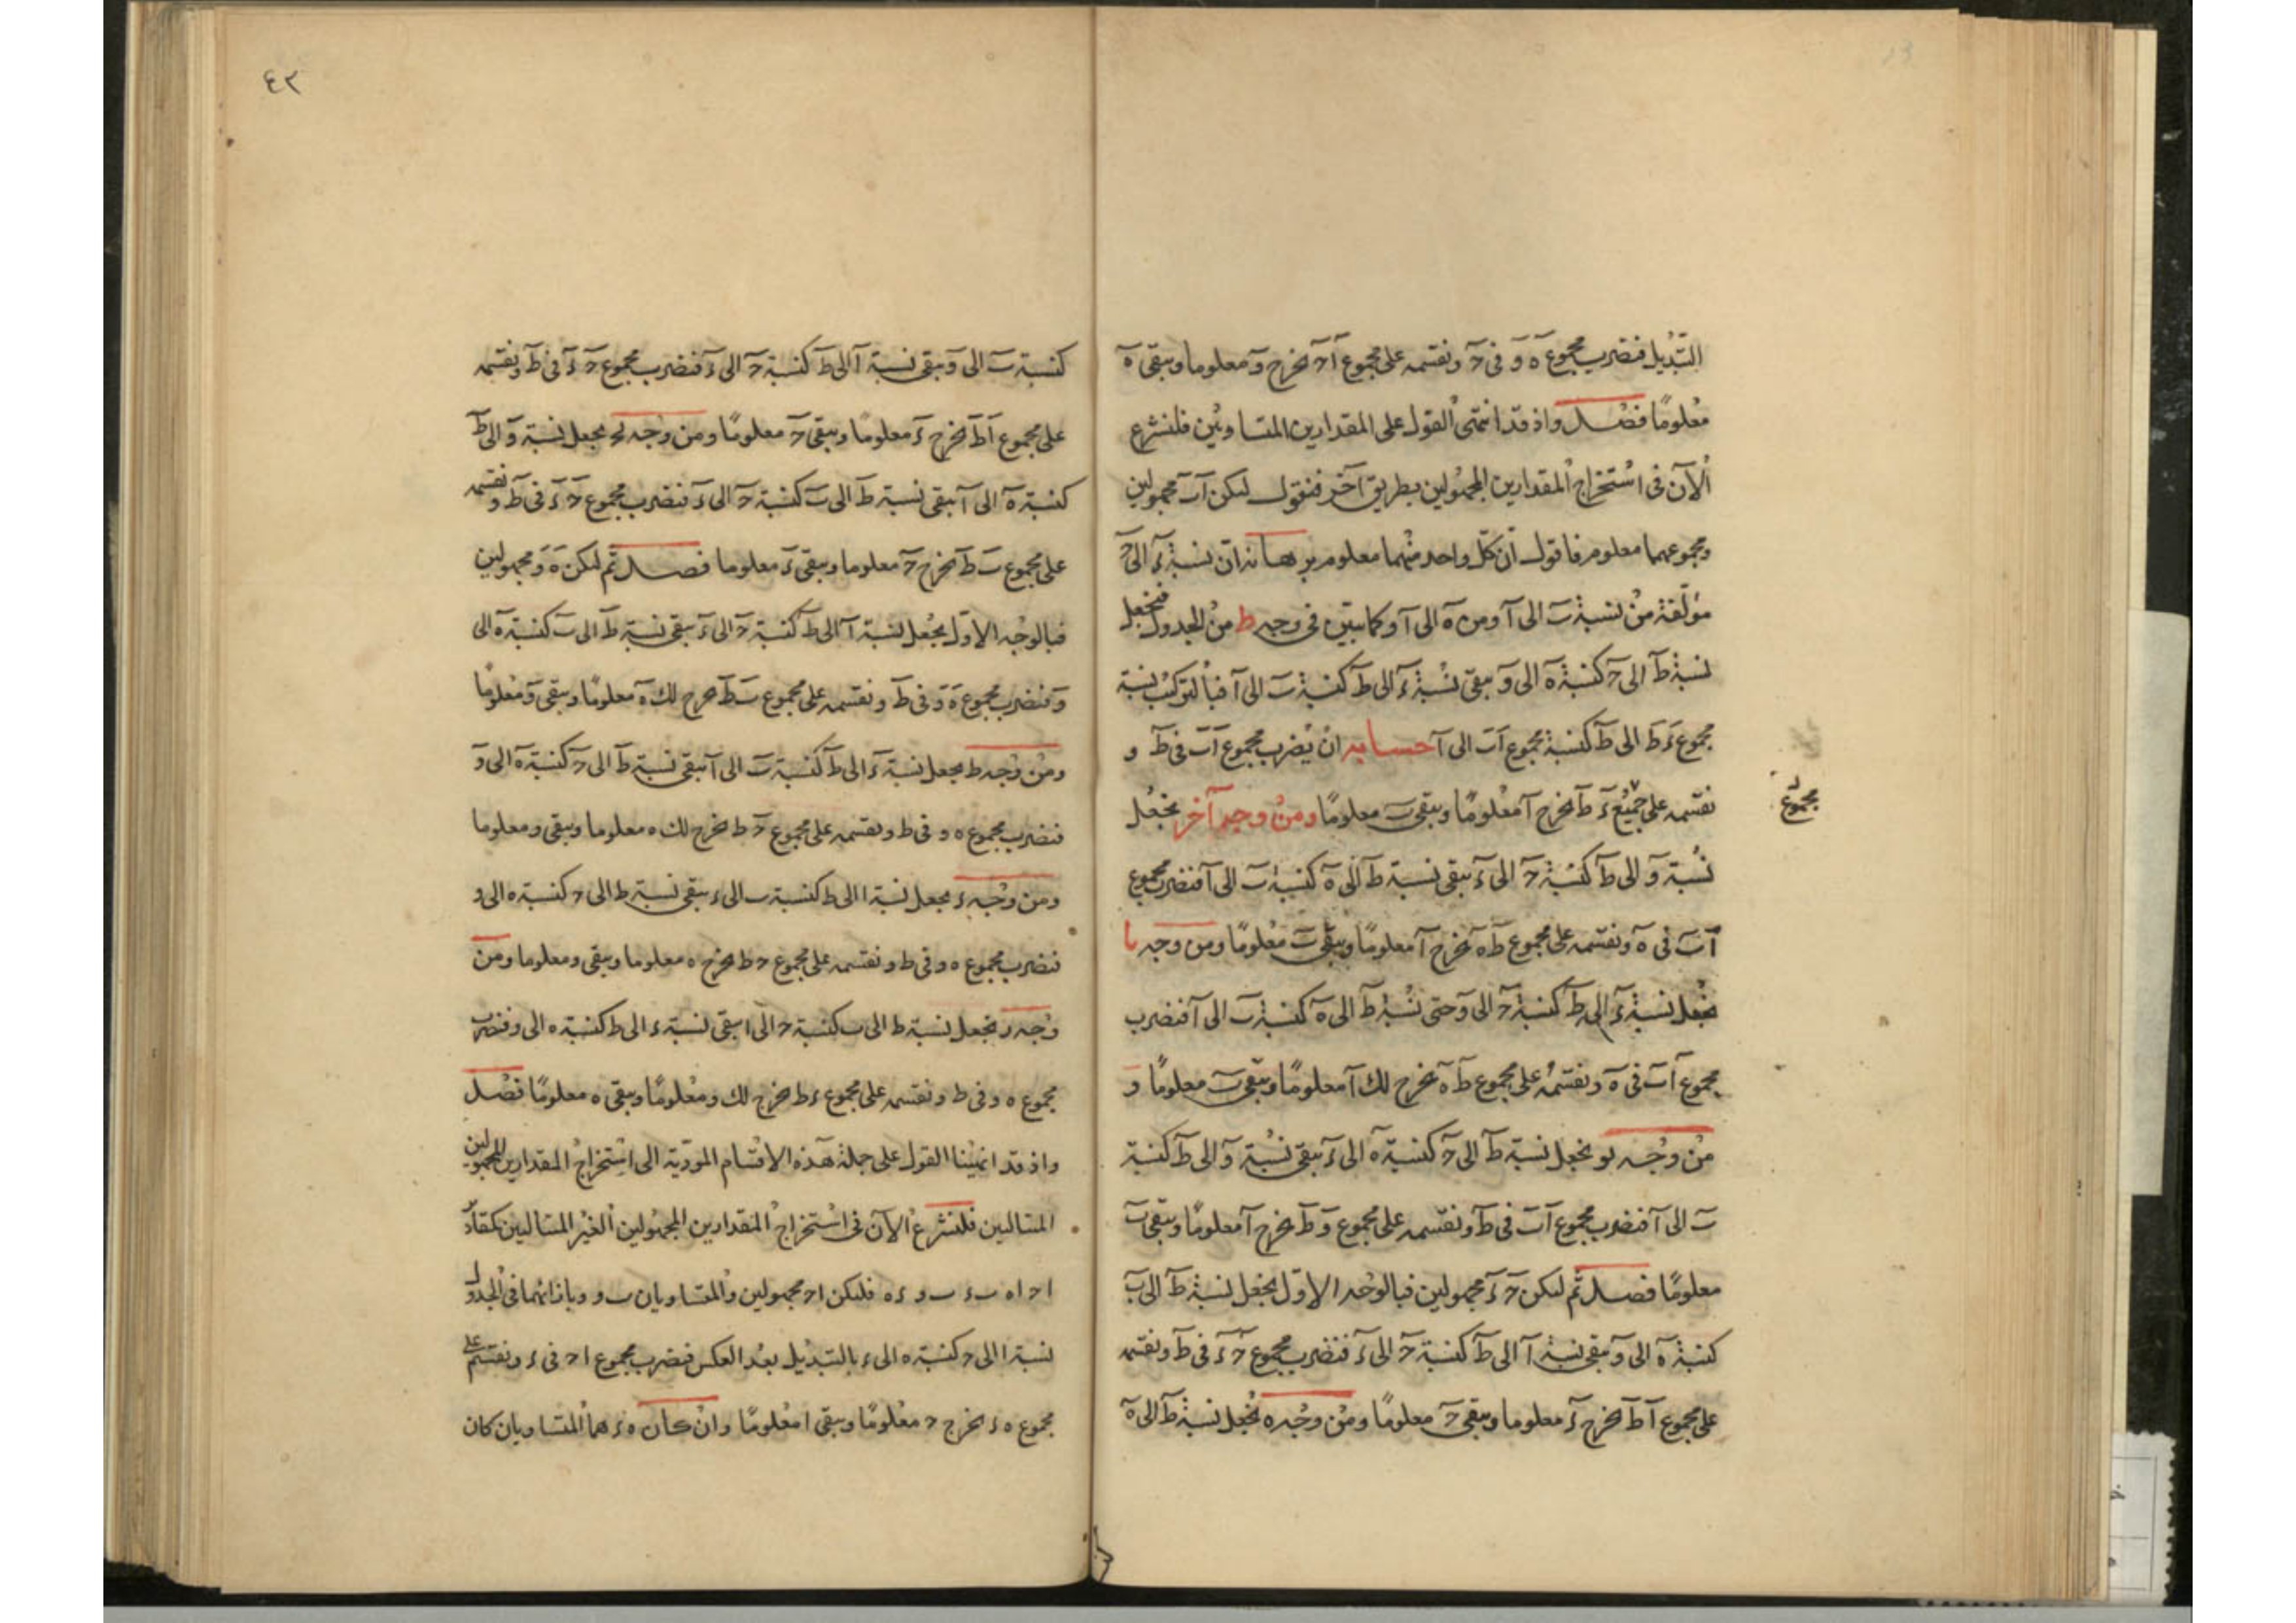 التبديل فنضرب مجموع ه و فى ح ونقسمه على مجموع آ ح يخرج و معلوما ويبقى ه
معلومًا فصل واذ قد انتهى القول على المقدارين المتساويين فلنشرع
الآن فى استخراج المقدارين المجهولين بطريق آخر فنقول ليكن آ ب مجهولين
ومجموعهما معلوم فاقول ان كل واحد منهما معلوم برهانه ان نسبة ء الى ح
مؤلفة من نسبة ب الى آ ومن ه الى آ و كما تبين فى وجه ط من الجدول فنجعل
نسبة ط الى ح كنسبة ه الى و يبقى نسبة ء الى ط كنسبة ب الى آ فبالتركيب نسبة
مجموع ء ط الى ط كنسبة مجموع آ ب الى آ حسابه ان يضرب مجموع آ ب فى ط و
نقسمه على جميع ء ط يخرج آ معلومًا ويبقى ب معلومًا ومن وجه آخر نجعل
مجموع
نسبة و الى ط كنسبة ح الى ء يبقى نسبة ط الى ه كنسبة ب الى آ فنضرب مجموع
آ ب فى ه ونقسمه على مجموع ط ه يخرج آ معلومًا ويبقى ب معلومًا ومن وجه يا
نجعل نسبة ء الى ط كنسبة ح الى و حتى نسبة ط الى ه كنسبة ب الى آ فنضرب
مجموع آ ب فى ه ونقسمه على مجموع ط ه يخرج لك آ معلومًا ويبقى ب معلومًا و
من وجه يو نجعل نسبة ط الى ح كنسبة ه الى ء يبقى نسبة و الى ط كنسبة
ب الى آ فنضرب مجموع آ ب فى ط ونقسمه على مجموع و ط يخرج آ معلومًا ويبقى ب
معلومًا فصل ثم ليكن ح ء مجهولين فبالوجه الاول نجعل نسبة ط الى ب
كنسبة ه الى و يبقى نسبة آ الى ط كنسبة ح الى ء فنضرب مجموع ح ء فى ط ونقسمه
على مجموع آ ط يخرج ء معلوما ويبقى ح معلومًا ومن وجه ه نجعل نسبة ط الى ه
٤٢
كنسبة ب الى و يبقى نسبة آ الى ط كنسبة ح الى ء فنضرب مجموع ح ء فى ط ونقسمه
على مجموع آ ط يخرج ء معلومًا ويبقى ح معلومًا ومن وجه يح نجعل نسبة و الى ط
كنسبة ه الى آ يبقى نسبة ط الى ب كنسبة ح الى ء فنضرب مجموع ح ء فى ط ونقسمه
على مجموع ب ط يخرج ح معلوما ويبقى ء معلوما فصل ثم ليكن ه و مجهولين
فبالوجه الاول نجعل نسبة آ الى ط كنسبة ح الى ء يبقى نسبة ط الى ب كنسبة ه الى
و فنضرب مجموع ه و فى ط ونقسمه على مجموع ب ط يخرج لك ه معلومًا ويبقى و معلومًا
ومن وجه ط نجعل نسبة ء الى ط كنسبة ب الى آ يبقى نسبة ط الى ح كنسبة ه الى و
فنضرب مجموع ه و فى ط ونقسمه على مجموع ح ط يخرج لك ه معلوما ويبقى و معلوما
ومن وجه ء نجعل نسبة ا الى ط كنسبة ب الى ء يبقى نسبة ط الى ح كنسبة ه الى و
فنضرب مجموع ه و فى ط ونقسمه على مجموع ح ط يخرج ه معلوما ويبقى و معلوما ومن
وجه ر نجعل نسبة ط الى ب كنسبة ح الى ا يبقى نسبة ء الى ط كنسبة ه الى و فنضرب
مجموع ه و فى ط ونقسمه على مجموع ء ط يخرج لك و معلومًا ويبقى ه معلومًا فصل
واذ قد انهينا القول على جملة هذه الاقسام المؤدية الى استخراج المقدارين المجهولين
المتتاليين فلنشرع الآن فى استخراج المقدارين المجهولين الغير المتتاليين كمقادير
ا ح ا ه ب ء ب و ء ه فليكن ا ح مجهولين والمتساويان ب و وبازائهما فى الجدول
نسبة ا الى ح كنسبة ه الى ء بالتبديل بعد العكس فنضرب مجموع ا ح فى ء ونقسم على
مجموع ه ء يخرج ح معلومًا ويبقى ا معلومًا وان كان ه ء هما المتساويان كان